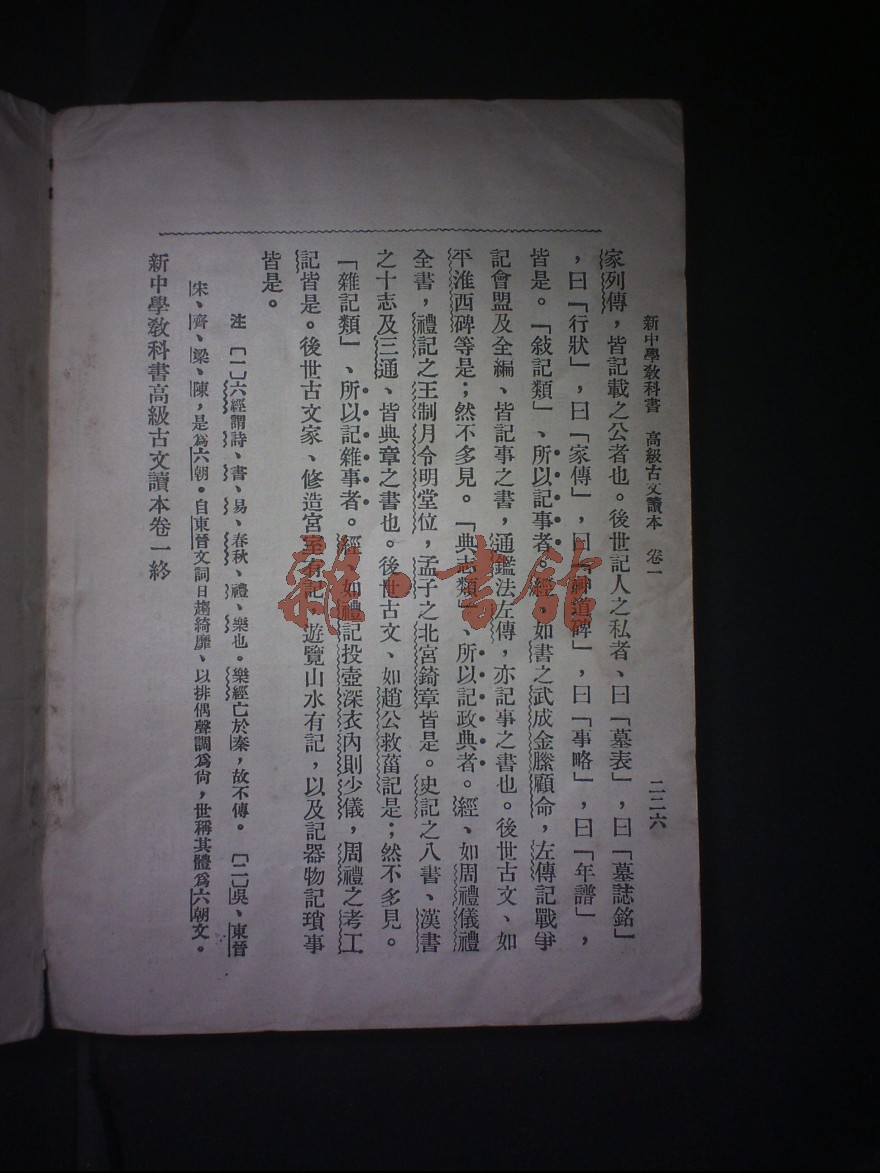 新中學敎科書　高級古文讀本　卷一　二二六
家列傳，皆記載之公者也。後世記人之私者、曰「墓表」，曰「墓誌銘」
，曰「行狀」，曰「家傳」，曰「神道碑」，曰「事略」，曰「年譜」，
皆是。「敍記類」、所以記事者。經、如書之武成金縢顧命，左傳記戰爭
記會盟及全編、皆記事之書，通鑑法左傳，亦記事之書也。後世古文、如
平淮西碑等是；然不多見。「典志類」、所以記政典者。經、如周禮儀禮
全書，禮記之王制月令明堂位，孟子之北宮錡章皆是。史記之八書、漢書
之十志及三通、皆典章之書也。後世古文、如趙公救菑記是；然不多見。
「雜記類」、所以記雜事者。經、如禮記投壺深衣內則少儀，周禮之考工
記皆是。後世古文家、修造宮室有記，遊覽山水有記，以及記器物記瑣事
皆是。
注　〔一〕六經謂詩、書、易、春秋、禮、樂也。樂經亡於秦，故不傳。〔二〕吳、東晉
宋、齊、梁、陳，是爲六朝。自東晉文詞日趨綺靡、以排偶聲調爲尙，世稱其體爲六朝文。
新中學敎科書高級古文讀本卷一終
雜·書館